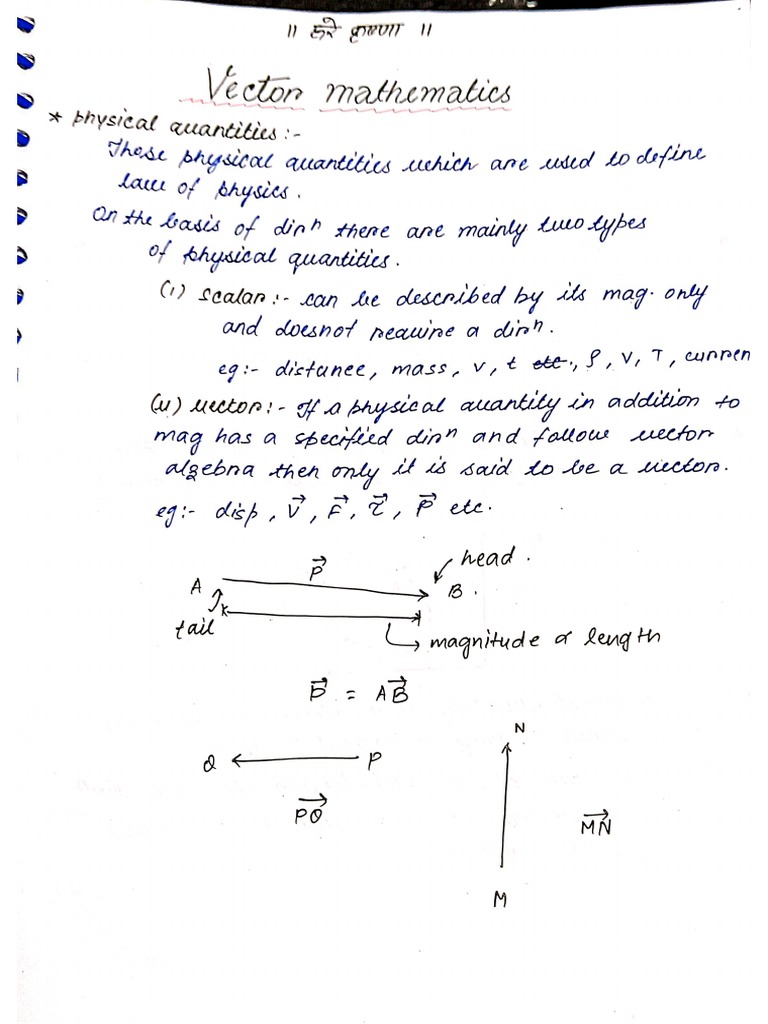 ॥ हरे कृष्णा ॥
Vector mathematics
* physical quantities :-
Those physical quantities which are used to define
law of physics.
On the basis of dirⁿ there are mainly two types
of physical quantities.
(i) scalar :- can be described by its mag. only
and doesnot require a dirⁿ.
eg:- distance, mass, v, t etc., ρ, V, T, curren
(ii) vector :- If a physical quantity in addition to
mag has a specified dirⁿ and follow vector
algebra then only it is said to be a vector.
eg:- disp, V⃗, F⃗, τ⃗, P⃗ etc.
P⃗ head.
A B.
tail
magnitude α length
P⃗ = AB⃗
N
Q P
PQ⃗
MN⃗
M